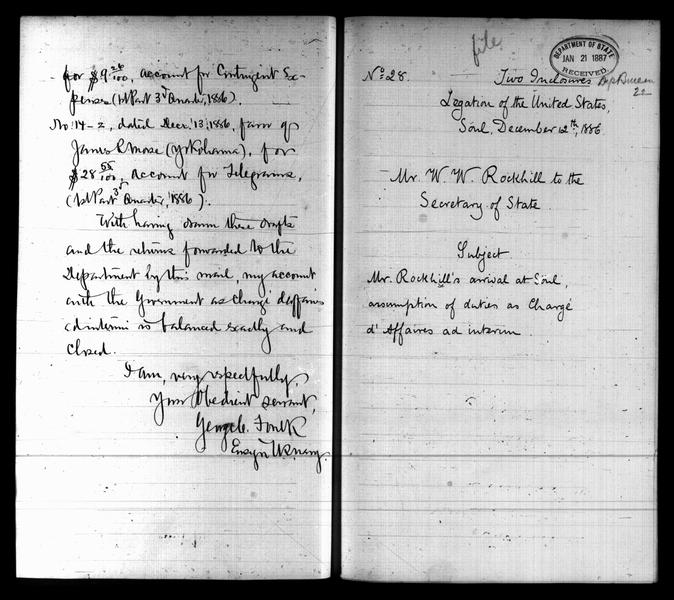 for $9 26/100, account for Contingent Ex-
penses (1st Part 3d Quarter, 1886).
No. 14-2, dated Decr. 13, 1886, favor of
James R. Morse (Yokohama), for
$28 55/100, account for Telegrams,
(1st Part 3d Quarter, 1886).
With having drawn these drafts
and the returns forwarded to the
Department by this mail, my account
with the Government as chargé d'affaires
ad interim is balanced exactly and
closed.
I am, very respectfully,
Your Obedient servant,
George C. Foulk
Ensign U.S. Navy.
file
DEPARTMENT OF STATE
JAN 21 1887
RECEIVED
No. 28.
Two Inclosures
Dip Bureau
22
Legation of the United States,
Söul, December 12th, 1886
Mr. W. W. Rockhill to the
Secretary of State
Subject
Mr. Rockhill's arrival at Söul,
assumption of duties as Chargé
d'Affaires ad interim